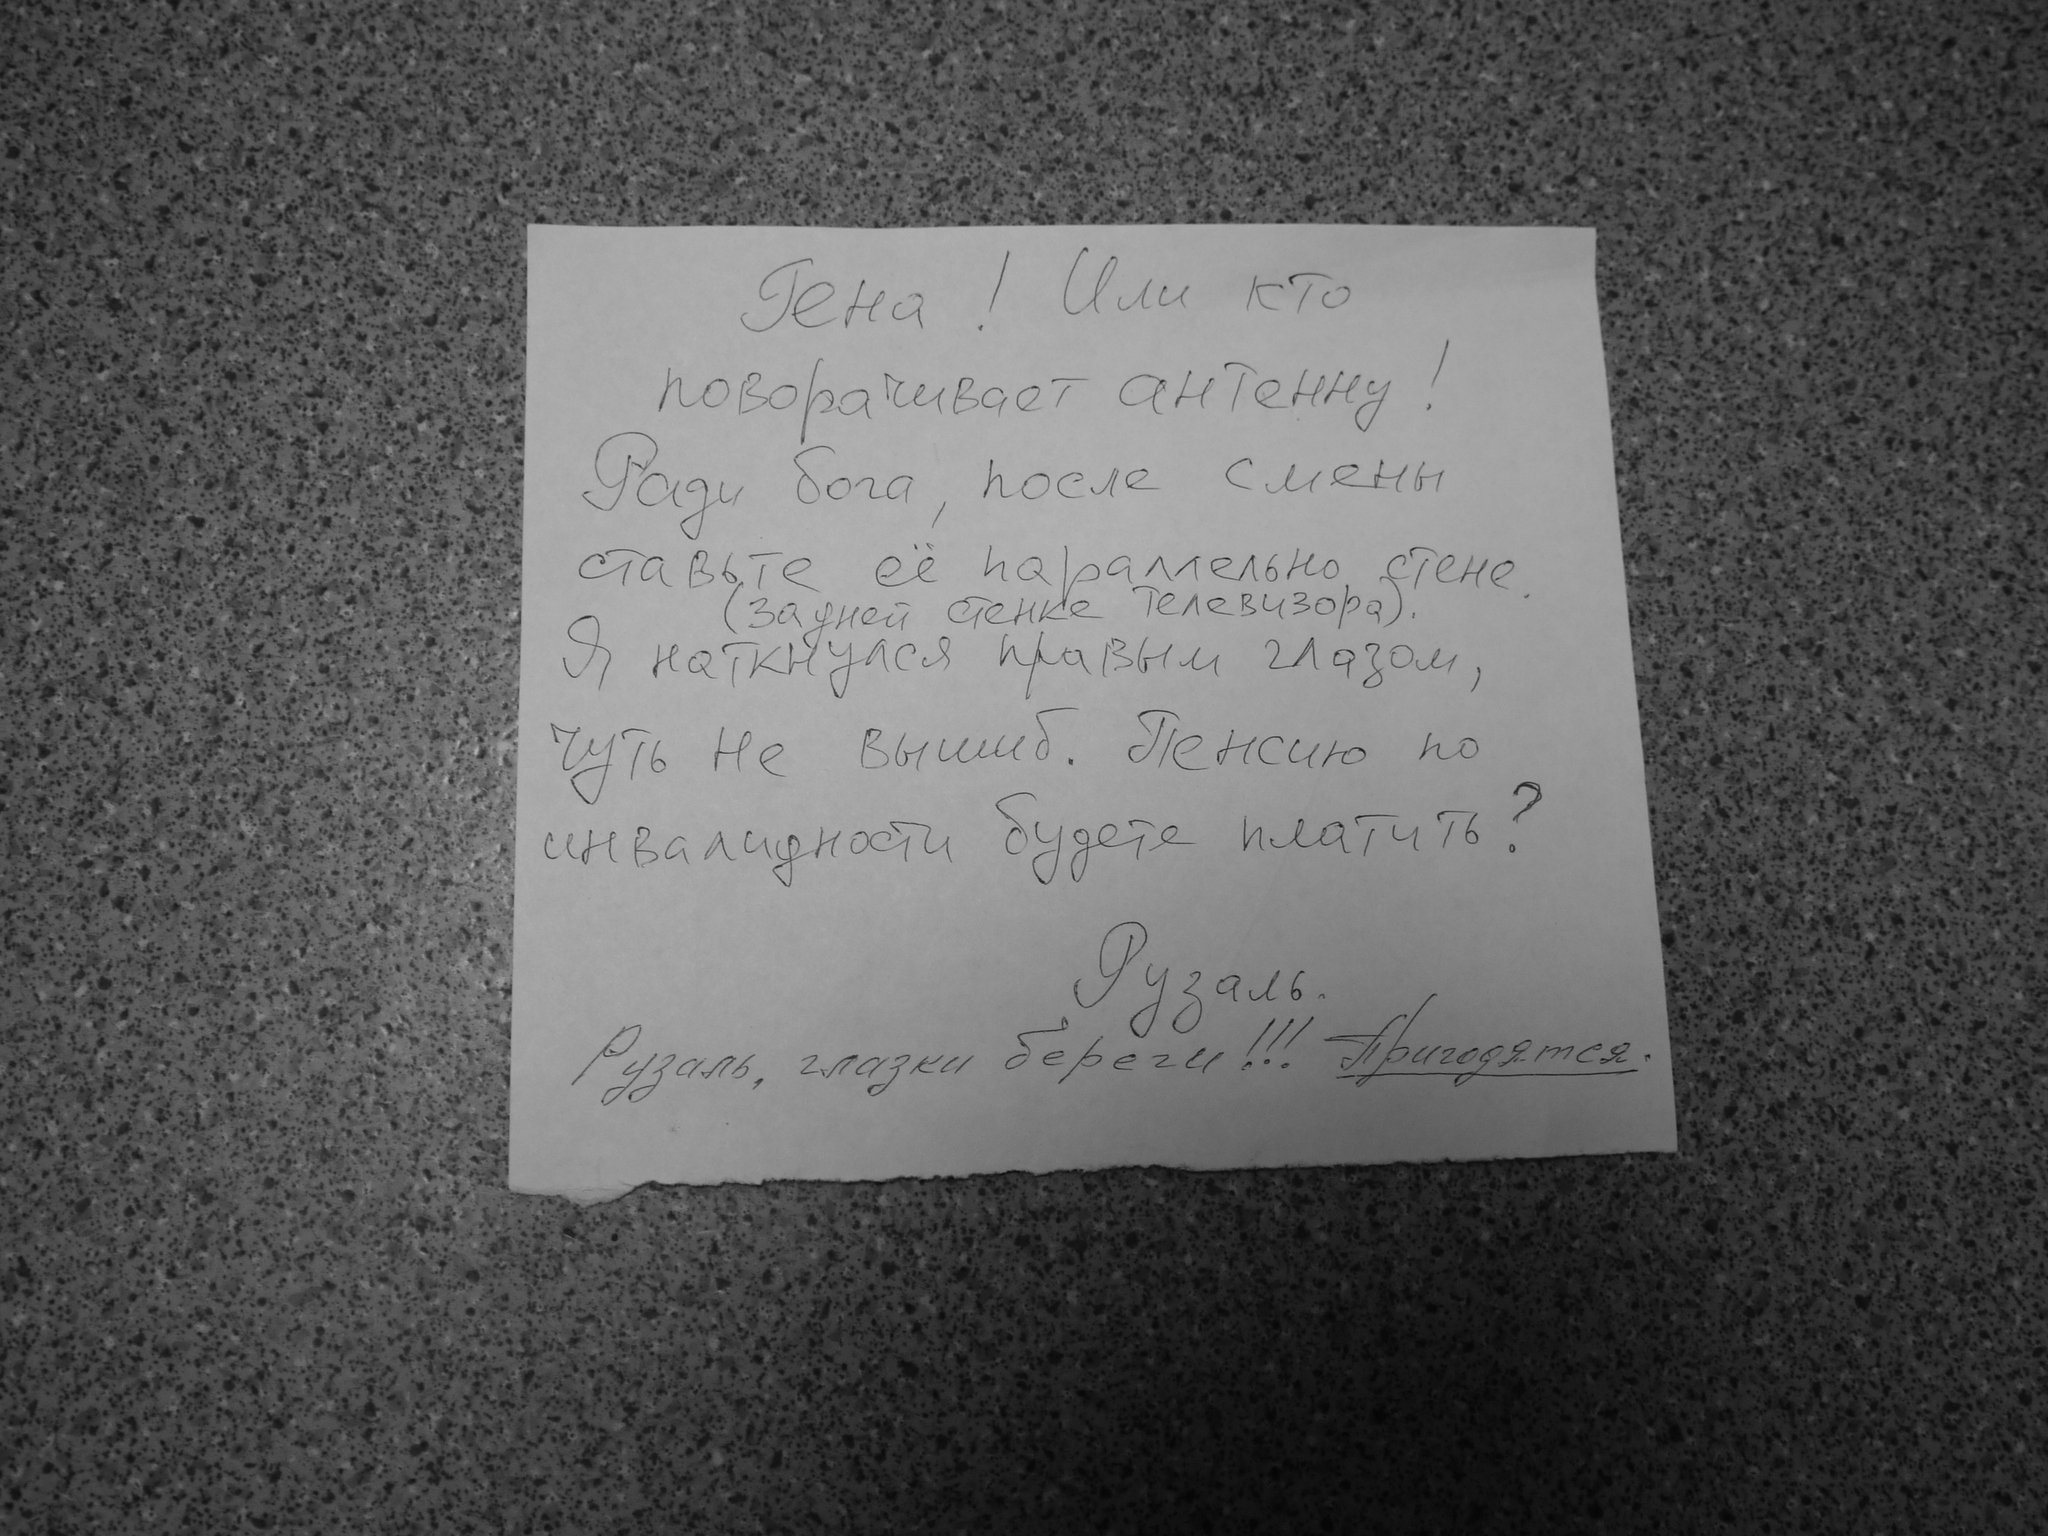 Гена! Или кто
поворачивает антенну!
Ради бога, после смены
ставьте её параллельно стене.
(задней стенке телевизора).
Я наткнулся правым глазом,
чуть не вышиб. Пенсию по
инвалидности будете платить?
Рузаль.
Рузаль, глазки береги!!! Пригодятся.